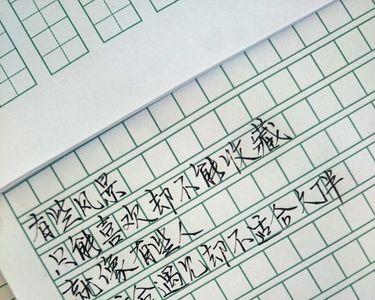 有些风景
只能喜欢却不能收藏
就像有些人
适合遇见却不适合久伴